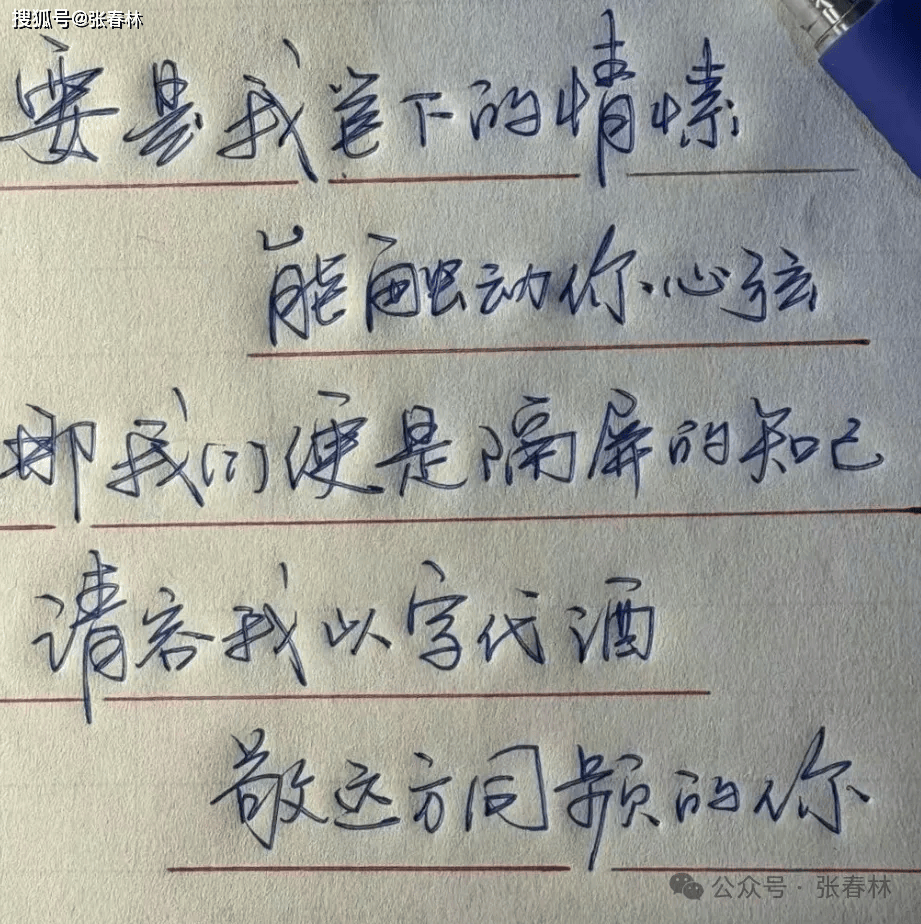 搜狐号@张春林
要是我笔下的情愫
能触动你心弦
那我们便是隔屏的知己
请容我以字代酒
敬远方同频的你
公众号·张春林